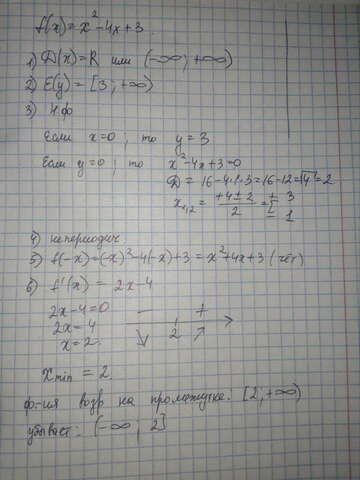 f(x)=x²-4x+3.
1) D(x)=R или (-∞; +∞)
2) E(y) = [3; +∞)
3) Нф
Если x=0; то y=3
Если y=0; то x²-4x+3=0
D=16-4·1·3=16-12=√4=2
x₁,₂= (+4±2)/2 = [3 1
4) непериодич.
5) f(-x)=(-x)²-4(-x)+3=x²+4x+3 (чёт)
6) f'(x) = 2x-4
2x-4=0 — +
2x=4 2
x=2.
xmin = 2
ф-ия возр на промежутке. [2; +∞)
убывает: (-∞; 2]